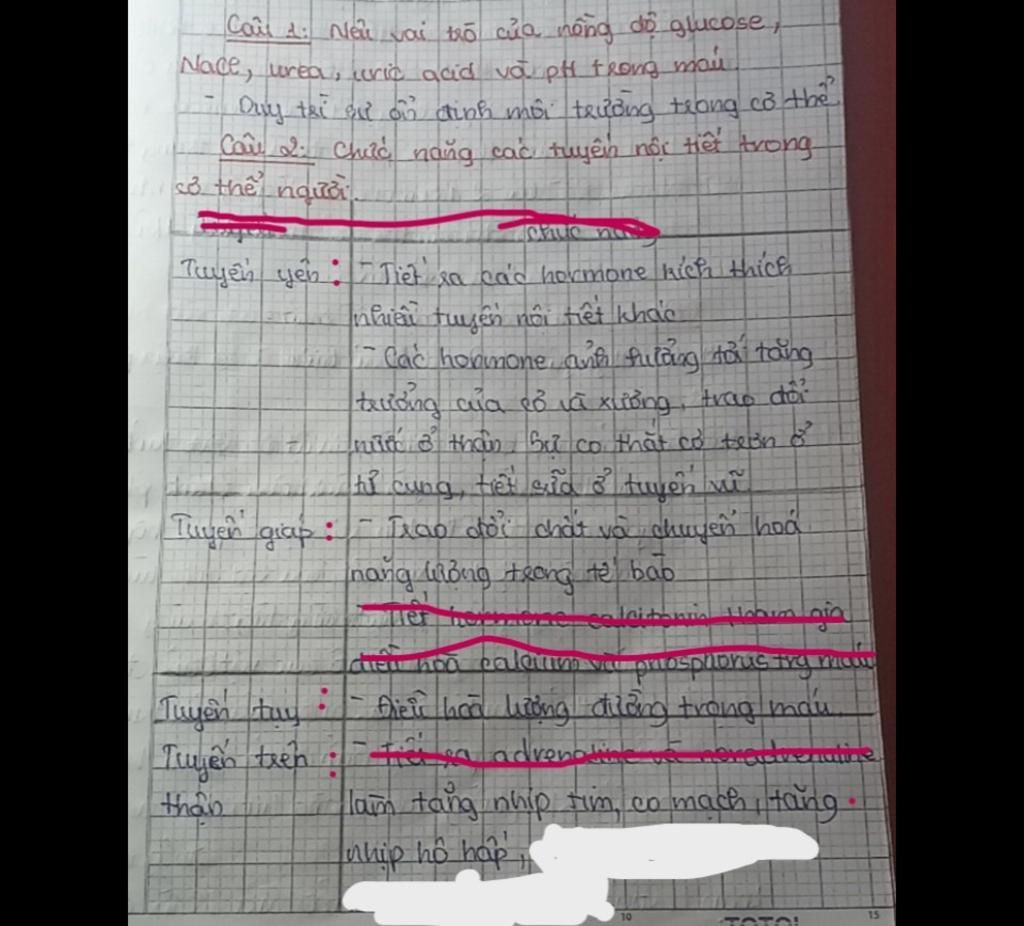 Câu 1: Nêu vai trò của nồng độ glucose,
Nace, urea, uric acid và pH trong máu
- Duy trì sự ổn định môi trường trong cơ thể
Câu 2: Chức năng các tuyến nội tiết trong
cơ thể người.
chức năng
Tuyến yên: - Tiết ra các hormone kích thích
nhiều tuyến nội tiết khác
- Các hormone ảnh hưởng tới tăng
trưởng của cơ và xương, trao đổi
nước ở thận, sự co thắt cơ trơn ở
tử cung, tiết sữa ở tuyến vú
Tuyến giáp: - Trao đổi chất và chuyển hoá
năng lượng trong tế bào
- Tiết hormone calcitonin tham gia
điều hoà calcium và phosphorus trg máu
Tuyến tụy: - Điều hoà lượng đường trong máu
Tuyến trên : - Tiết ra adrenaline và noradrenaline
thận làm tăng nhịp tim, co mạch, tăng
nhịp hô hấp,
10 15